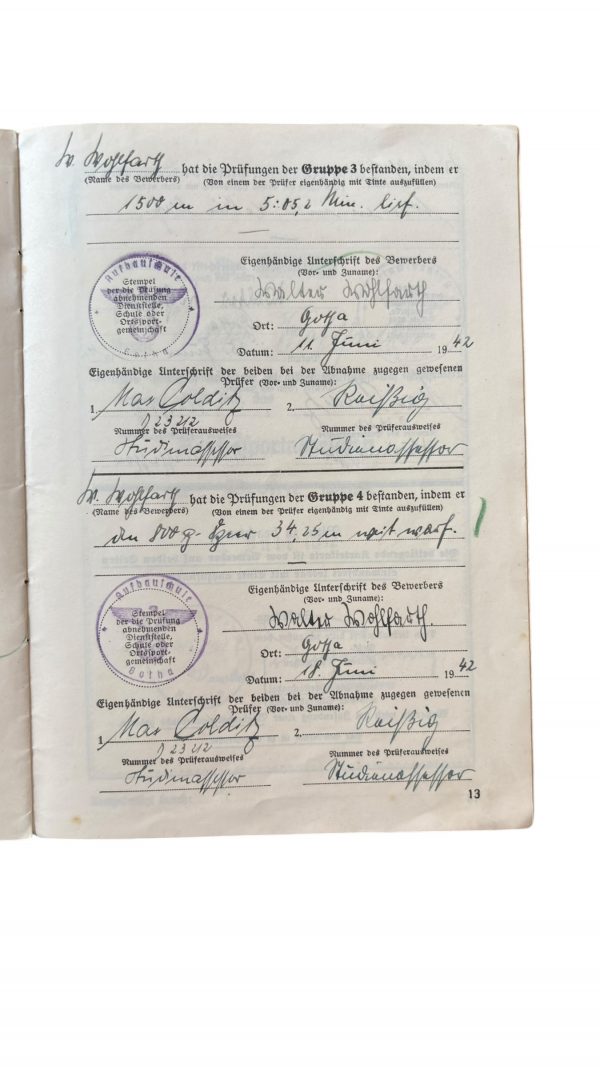 W. Wohlfarth hat die Prüfungen der Gruppe 3 bestanden, indem er
(Name des Bewerbers) (Von einem der Prüfer eigenhändig mit Tinte auszufüllen)
1500 m in 5:05,2 Min. lief.
Aufbauschule
Stempel
der die Prüfung
abnehmenden
Dienststelle,
Schule oder
Ortssport-
gemeinschaft
Gotha
Eigenhändige Unterschrift des Bewerbers
(Vor- und Zuname):
Walter Wohlfarth
Ort: Gotha
Datum: 11. Juni 1942
Eigenhändige Unterschrift der beiden bei der Abnahme zugegen gewesenen
Prüfer (Vor- und Zuname):
1. Max Colditz 2. Reißig
J 23212
Nummer des Prüferausweises Nummer des Prüferausweises
Studienassessor Studienassessor
W. Wohlfarth hat die Prüfungen der Gruppe 4 bestanden, indem er
(Name des Bewerbers) (Von einem der Prüfer eigenhändig mit Tinte auszufüllen)
den 800 g- Speer 34,25 m weit warf.
Aufbauschule
Stempel
der die Prüfung
abnehmenden
Dienststelle,
Schule oder
Ortssport-
gemeinschaft
Gotha
Eigenhändige Unterschrift des Bewerbers
(Vor- und Zuname):
Walter Wohlfarth.
Ort: Gotha
Datum: 18. Juni 1942
Eigenhändige Unterschrift der beiden bei der Abnahme zugegen gewesenen
Prüfer (Vor- und Zuname):
1. Max Colditz 2. Reißig
J 23212
Nummer des Prüferausweises Nummer des Prüferausweises
Studienassessor Studienassessor
13